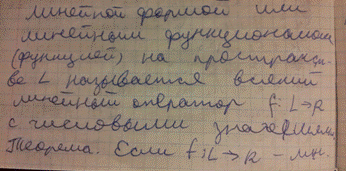 линейной формой или
линейным функционалом
(функцией) на пространс-
ве L называется всякий
линейный оператор f: L→R
с числовыми значениями.
Теорема. Если f: L→R - лин.